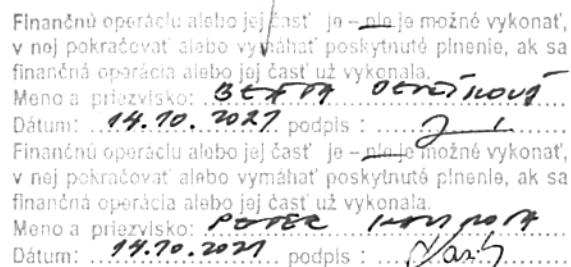 Finančnú operáciu alebo jej časť je – nie je možné vykonať,
v nej pokračovať alebo vymáhať poskytnuté plnenie, ak sa
finančná operácia alebo jej časť už vykonala.
Meno a priezvisko: BEATA
Dátum: 14.10.2021 podpis :
Finančnú operáciu alebo jej časť je – nie je možné vykonať,
v nej pokračovať alebo vymáhať poskytnuté plnenie, ak sa
finančná operácia alebo jej časť už vykonala.
Meno a priezvisko: PETER
Dátum: 14.10.2021 podpis :